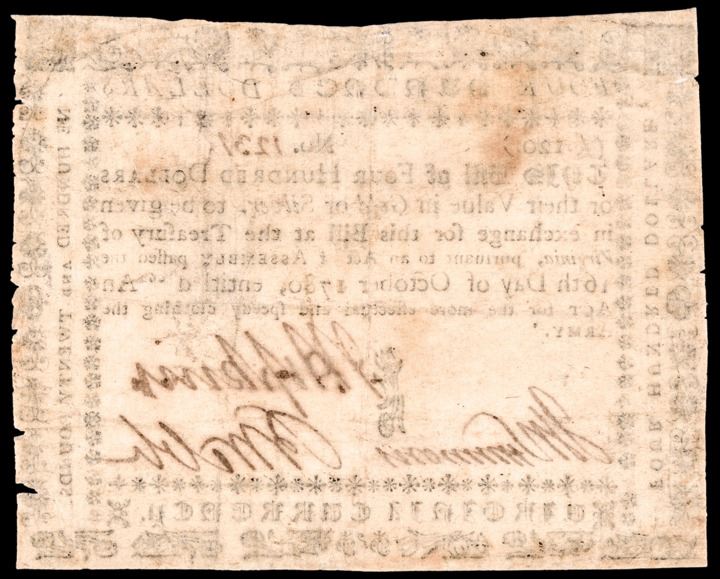 FOUR HUNDRED DOLLARS
(£ 120.) No. 1231
THIS Bill of FOUR HUNDRED DOLLARS
or their Value in Gold or Silver, to be given
in exchange for this Bill at the Treasury of
Virginia, pursuant to an ACT of ASSEMBLY passed the
16th Day of October 1780, entitled "An
ACT for the more effectual and speedy clothing the
ARMY."
J Hopkins
VIRGINIA CURRENCY.
FOUR HUNDRED DOLLARS
ONE HUNDRED AND TWENTY POUNDS